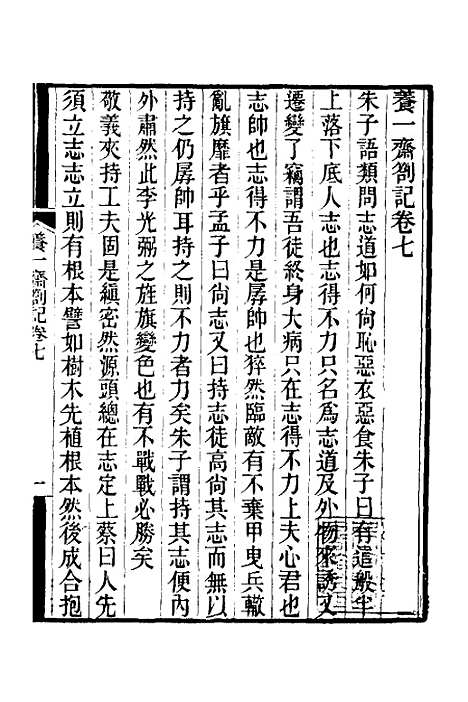 養一齋劄記卷七
朱子語類問志道如何尙恥惡衣惡食朱子曰有這般半
上落下底人志也志得不力只名爲志道及外物來誘又
遷變了竊謂吾徒終身大病只在志得不力上夫心君也
志帥也志得不力是孱帥也猝然臨敵有不棄甲曳兵轍
亂旗靡者乎孟子曰尙志又曰持志徒高尙其志而無以
持之仍孱帥耳持之則不力者力矣朱子謂持其志便內
外肅然此李光弼之旌旗變色也有不戰戰必勝矣
敬義夾持工夫固是縝密然源頭總在志定上蔡曰人先
須立志志立則有根本譬如樹木先植根本然後成合抱
養一齋劄記卷七
一